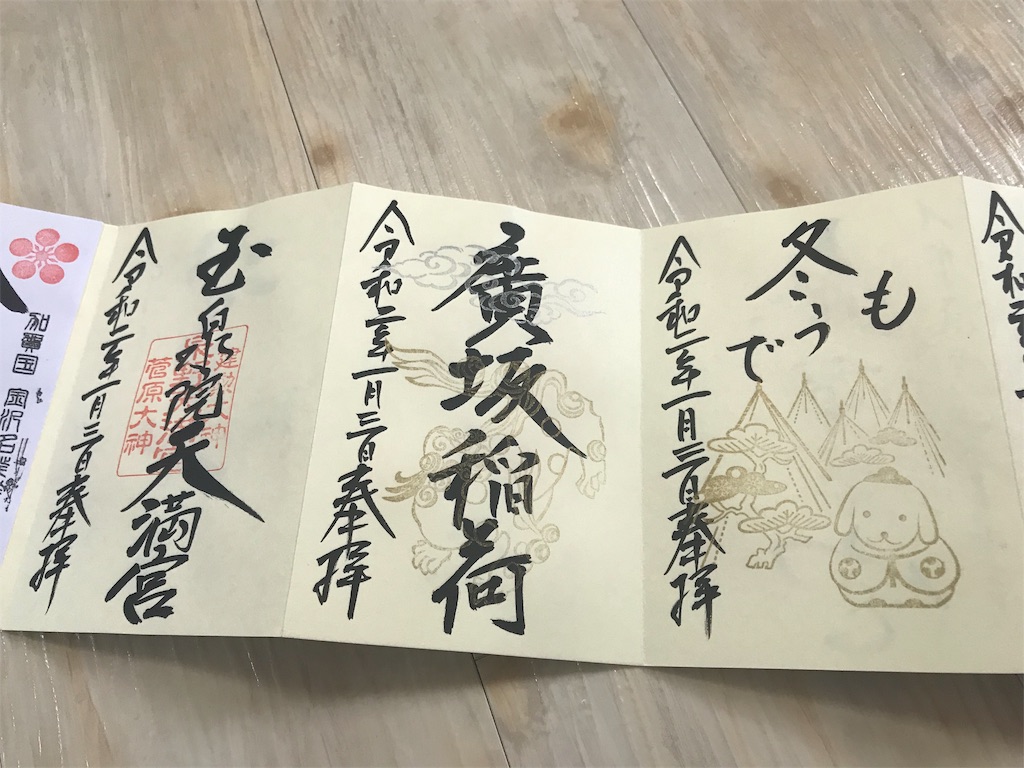 令和
冬もうで
令和二年一月三日奉拝
廣坂稲荷
令和二年一月三日奉拝
玉泉院天満宮
菅原大神
令和二年一月三日奉拝
加賀国 金沢